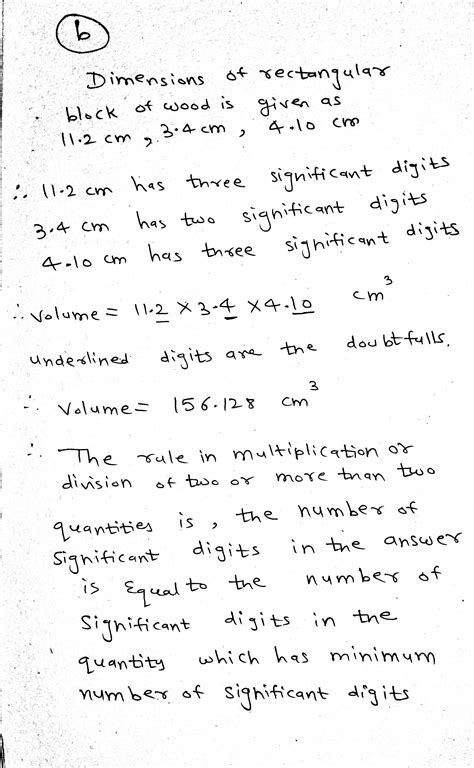 b
Dimensions of rectangular
block of wood is given as
11.2 cm, 3.4 cm, 4.10 cm
∴ 11.2 cm has three significant digits
3.4 cm has two significant digits
4.10 cm has three significant digits
∴ Volume = 11.2 × 3.4 × 4.10 cm³
underlined digits are the doubtfulls.
∴ Volume = 156.128 cm³
∴ The rule in multiplication or
division of two or more than two
quantities is, the number of
Significant digits in the answer
is Equal to the number of
Significant digits in the
quantity which has minimum
number of significant digits